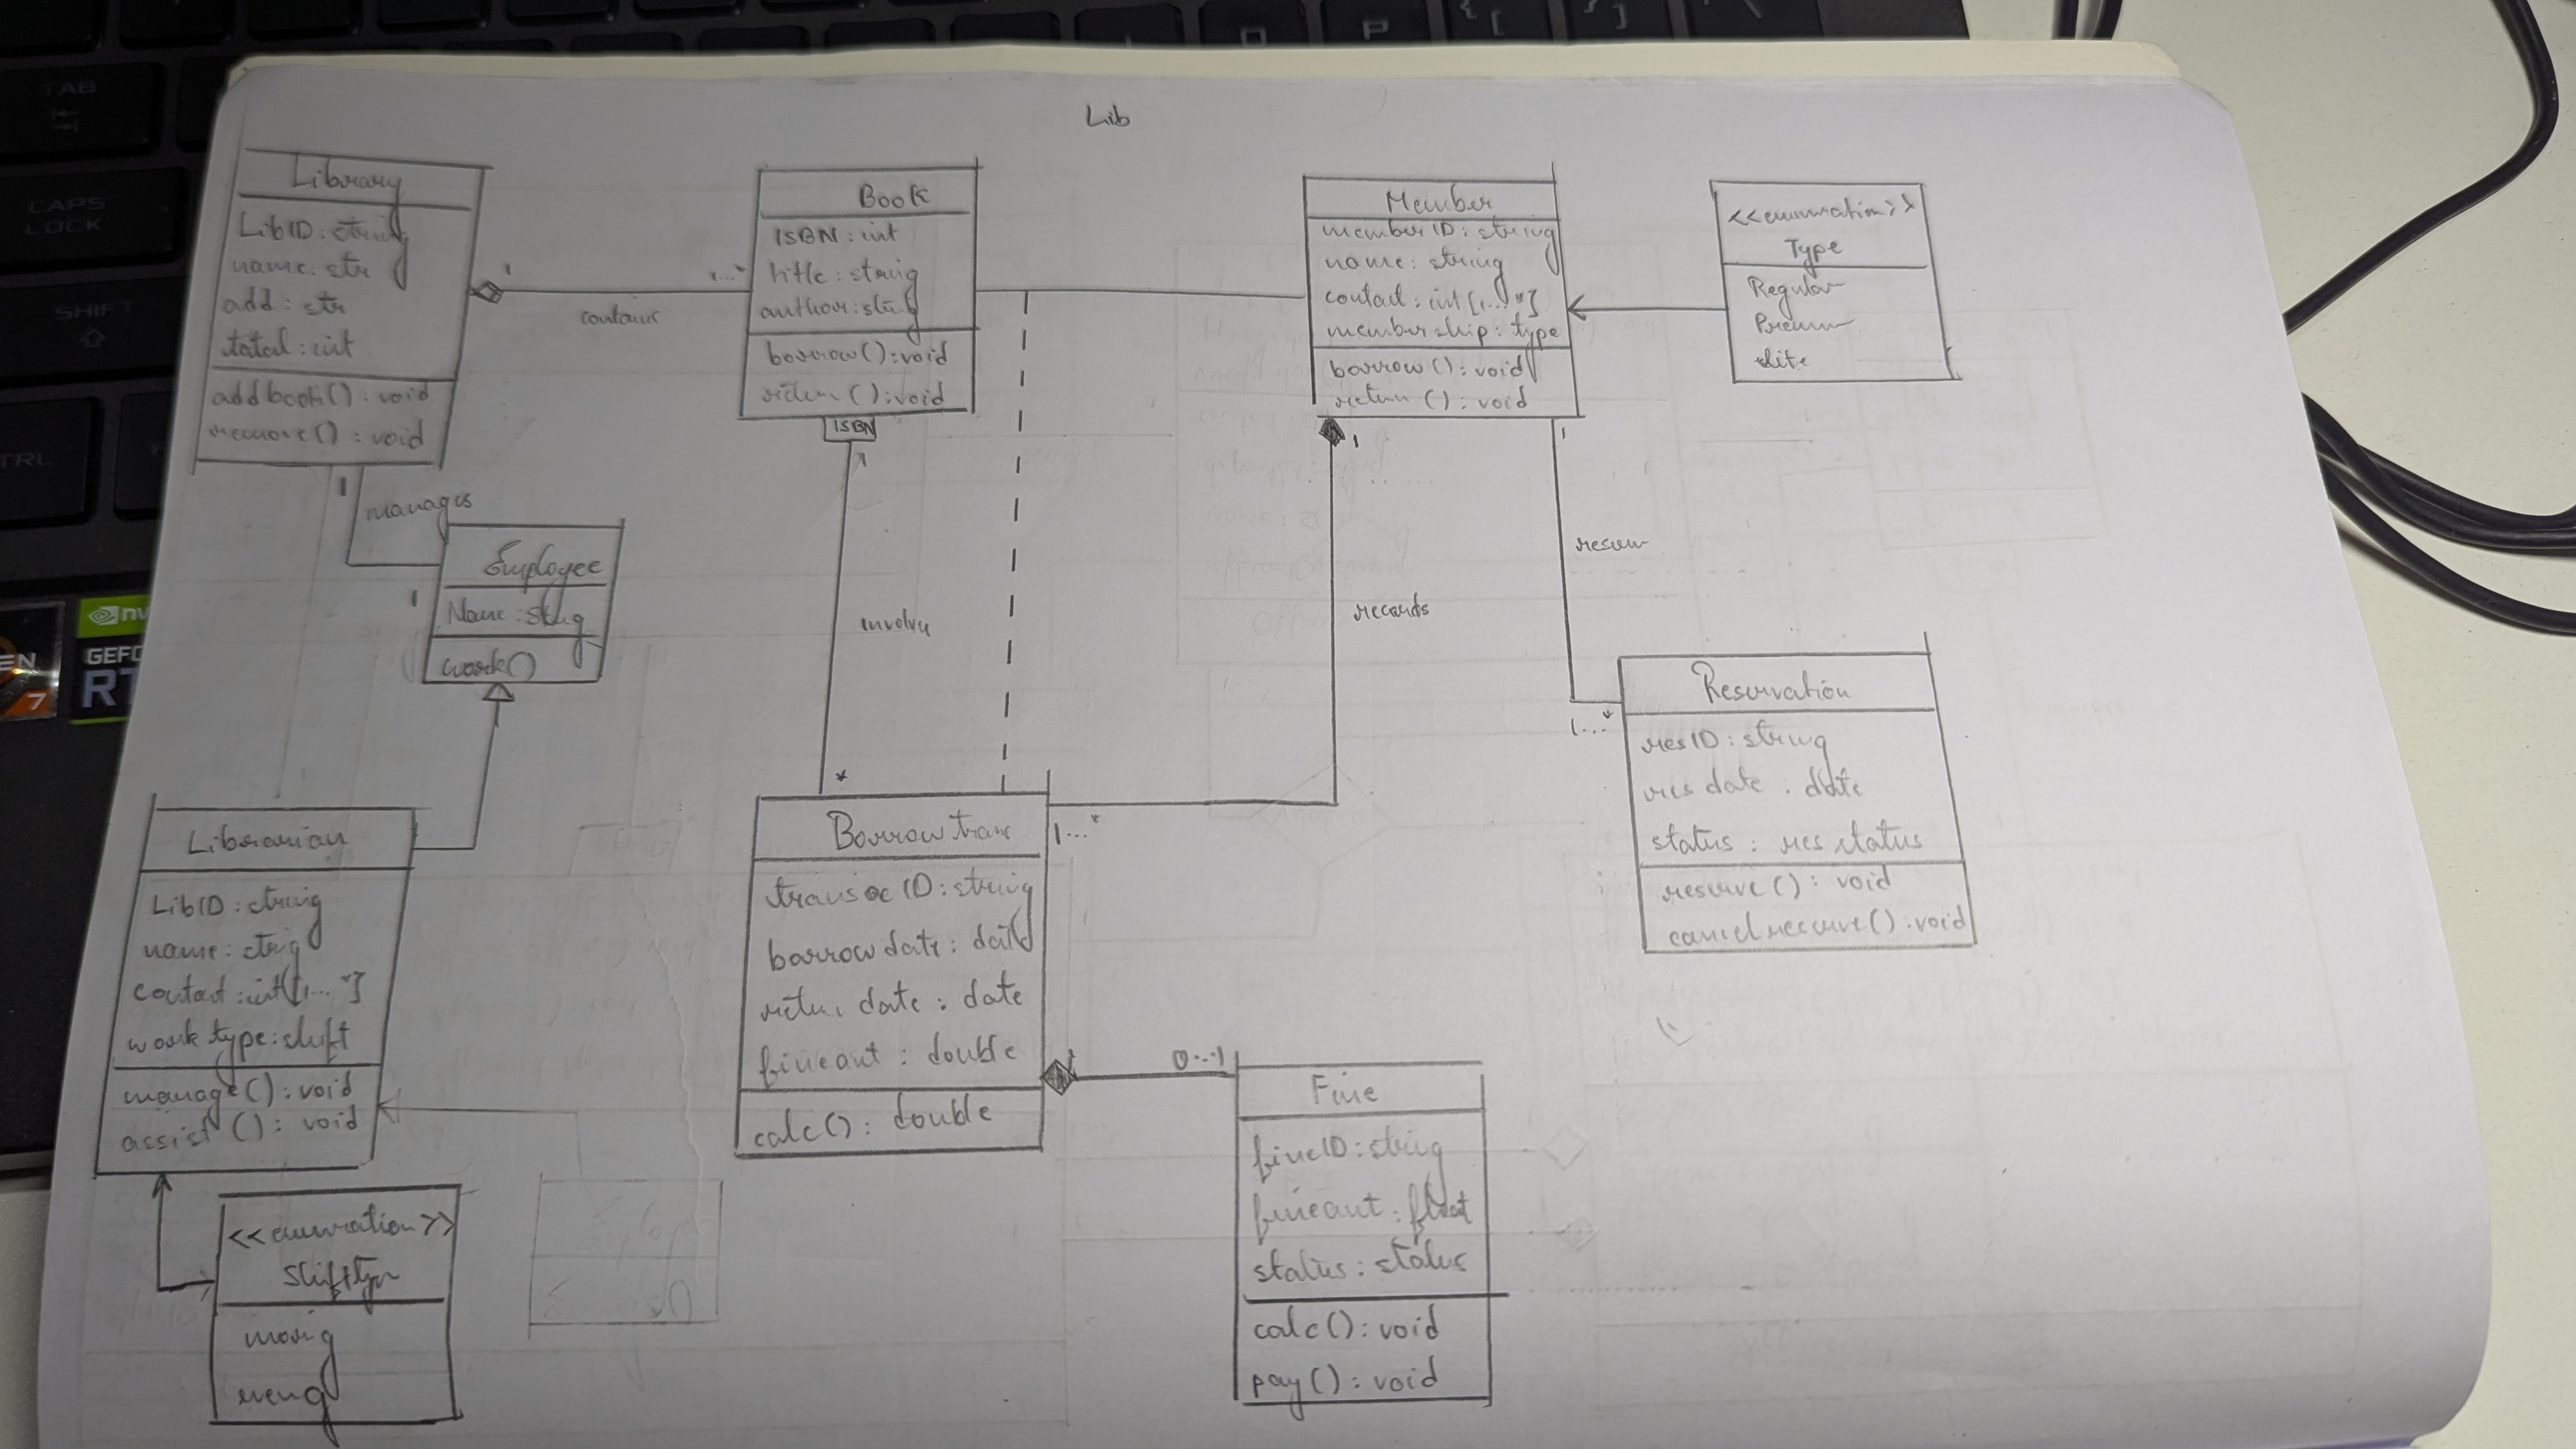 Lib
Library
LibID : string
name : str
add : str
total : int
addbook() : void
remove() : void
1
contains
1...*
Book
ISBN : int
title : string
author : string
borrow() : void
return() : void
ISBN
Member
memberID : string
name : string
contact : int [1...*]
membership : type
borrow() : void
return() : void
<<enumeration>>
Type
Regular
Premium
elite
1
manages
1
Employee
Name : string
work()
1
involve
*
1
records
1...*
1
reserv
1...*
Reservation
resID : string
res date : date
status : res status
reserve() : void
cancel reserve() : void
Librarian
LibID : string
name : string
contact : int [1...*]
work type : shift
manage() : void
assist() : void
<<enumeration>>
Shifttype
morig
eveng
Borrow trans
transac ID : string
borrow date : date
return date : date
fineamt : double
calc() : double
1
0...1
Fine
fineID : string
fineamt : float
status : status
calc() : void
pay() : void
TAB
CAPS
LOCK
SHIFT
CTRL
O
P
{
[
}
]
\
GEFO
RT
7